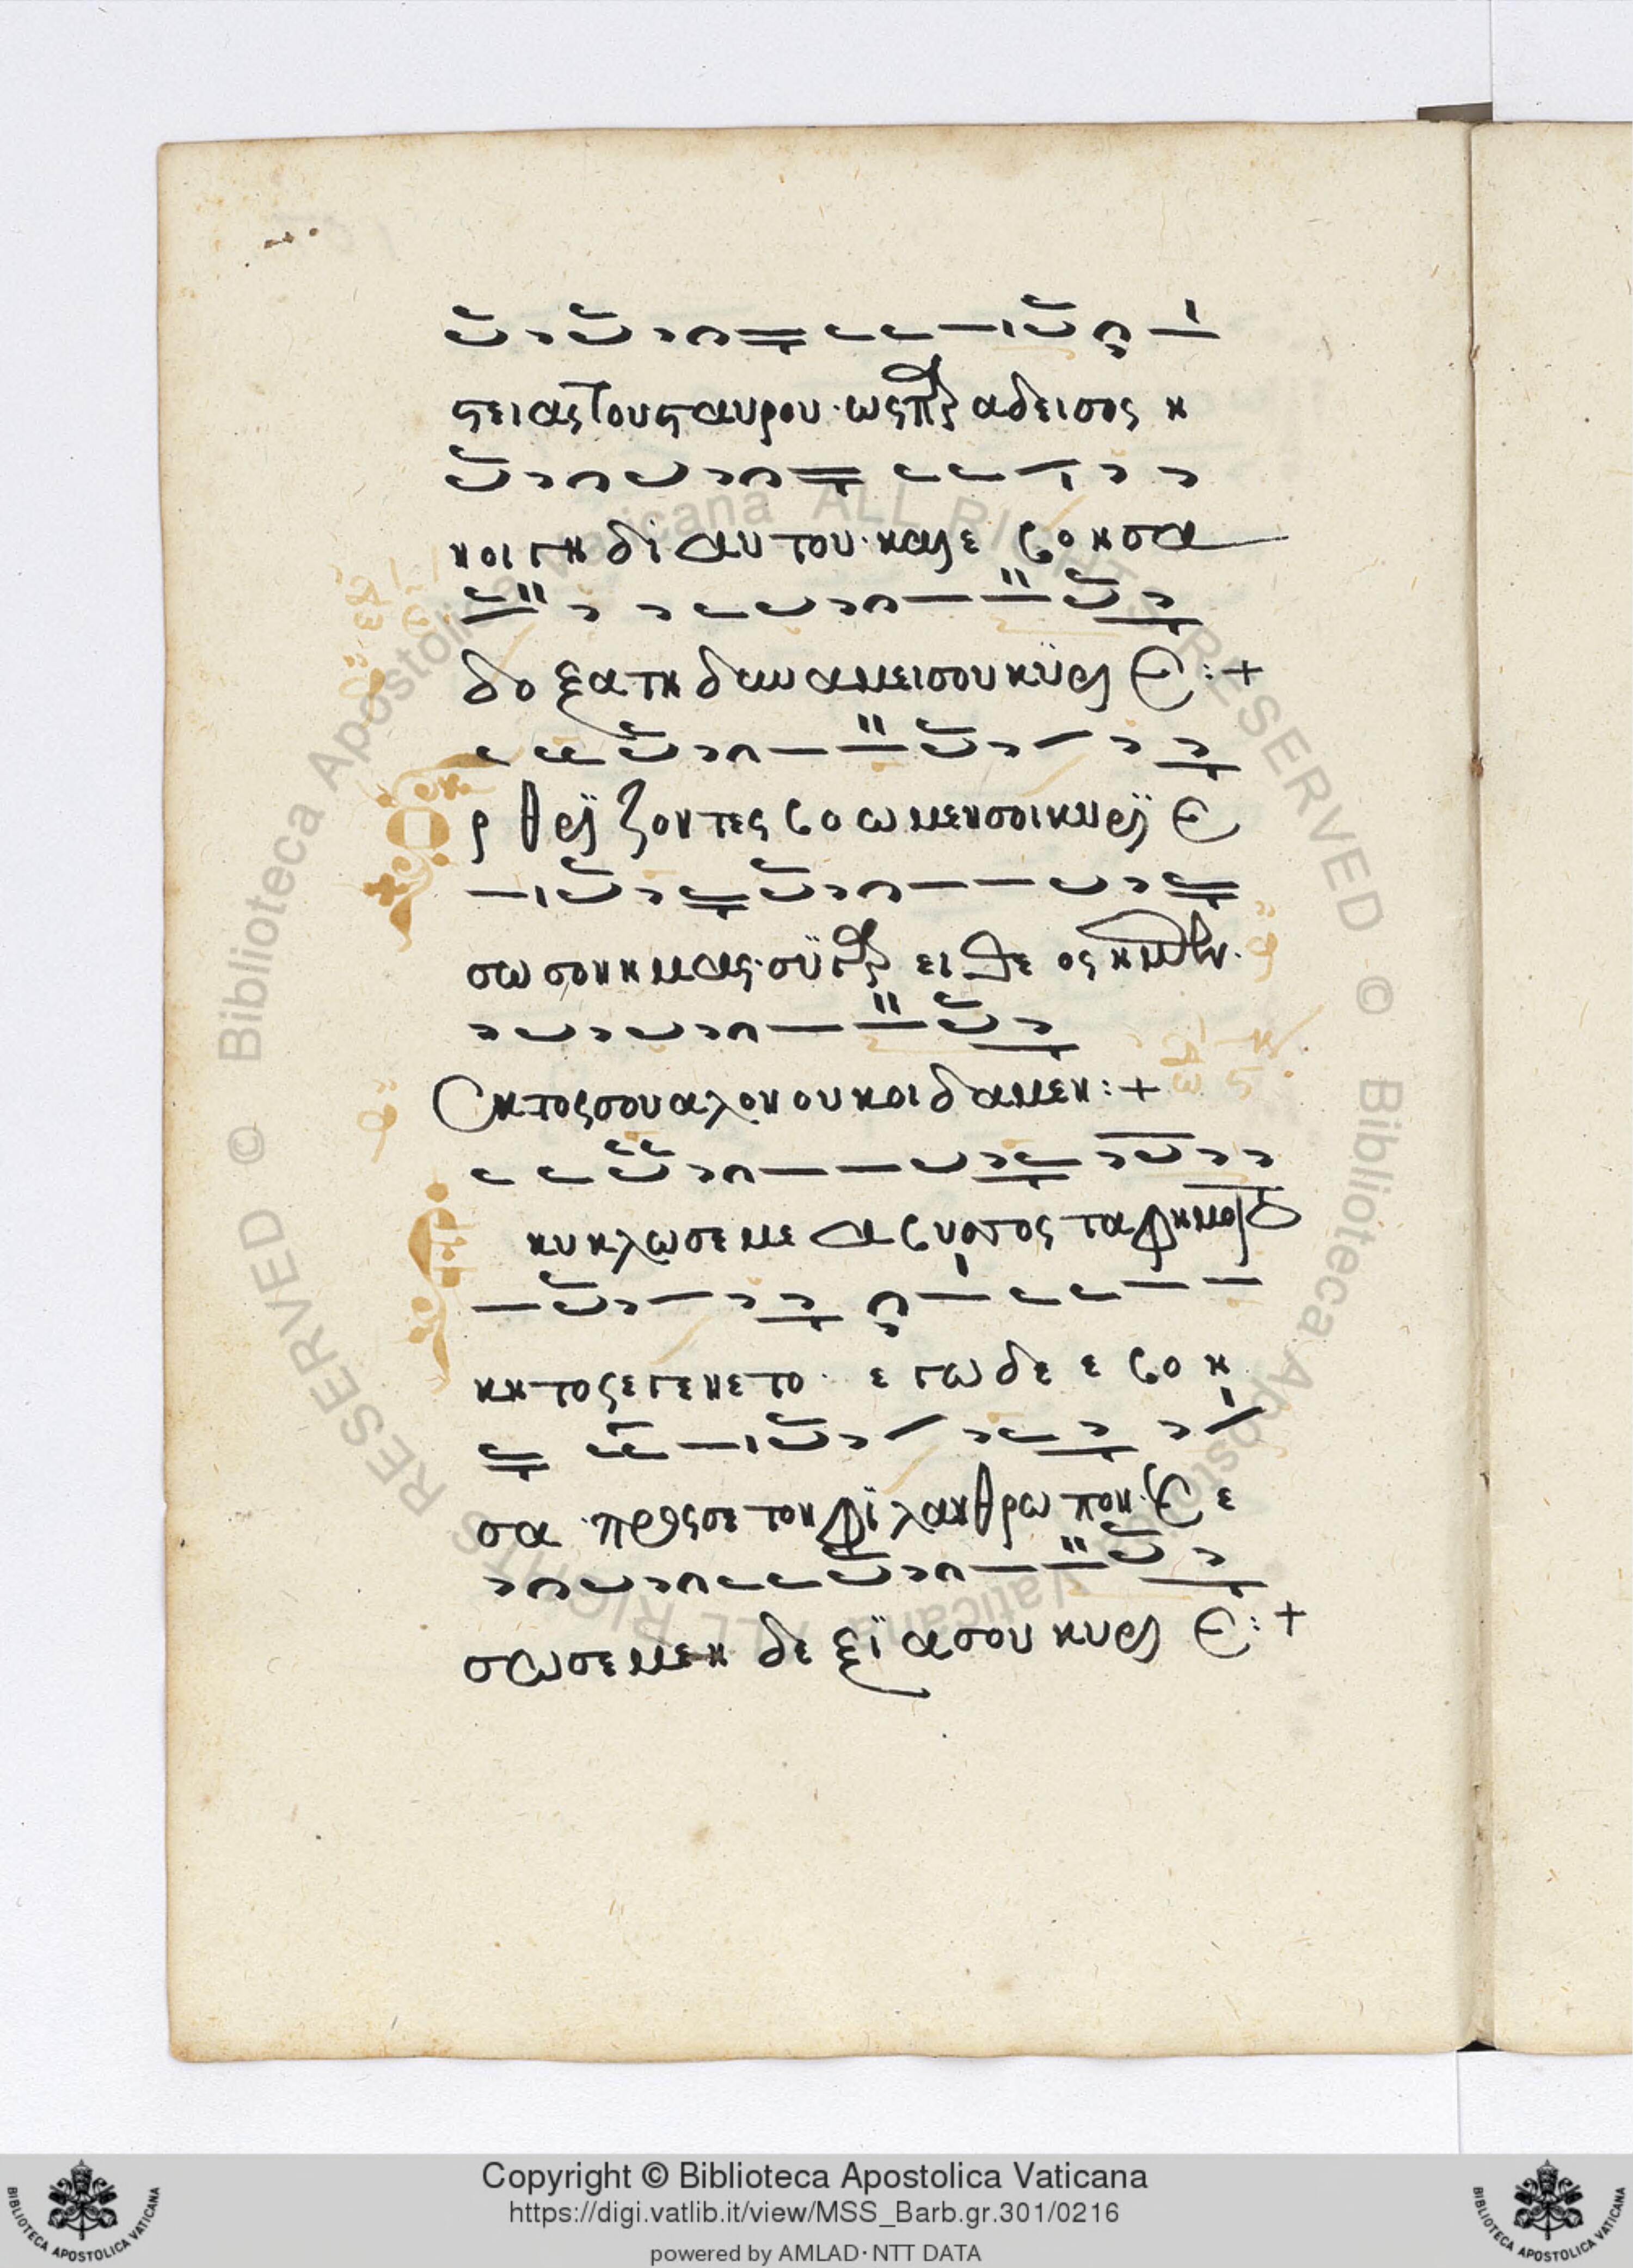 στειας του σταυρου· ως παραδεισος η
νοιγη δι αυτου· και εβοησα
δοξα τη δυναμει σου κυριε :+
ρθριζοντες βοωμεν σοι κυριε
σωσον ημας· συ γαρ ει θεος ημων·
εκτος σου αλον ουκ οιδαμεν :+
κυκλωσε με αβυσσος ταφη μοι
κητος εγενετο· εγω δε εβοη
σα· προς σε τον φιλανθρωπον· και ε
σωσε μεν δεξια σου κυριε :+
© Biblioteca Apostolica Vaticana ALL RIGHTS RESERVED © Biblioteca Apostolica Vaticana ALL RIGHTS RESERVED
Copyright © Biblioteca Apostolica Vaticana
https://digi.vatlib.it/view/MSS_Barb.gr.301/0216
powered by AMLAD·NTT DATA
BIBLIOTECA APOSTOLICA VATICANA
BIBLIOTECA APOSTOLICA VATICANA